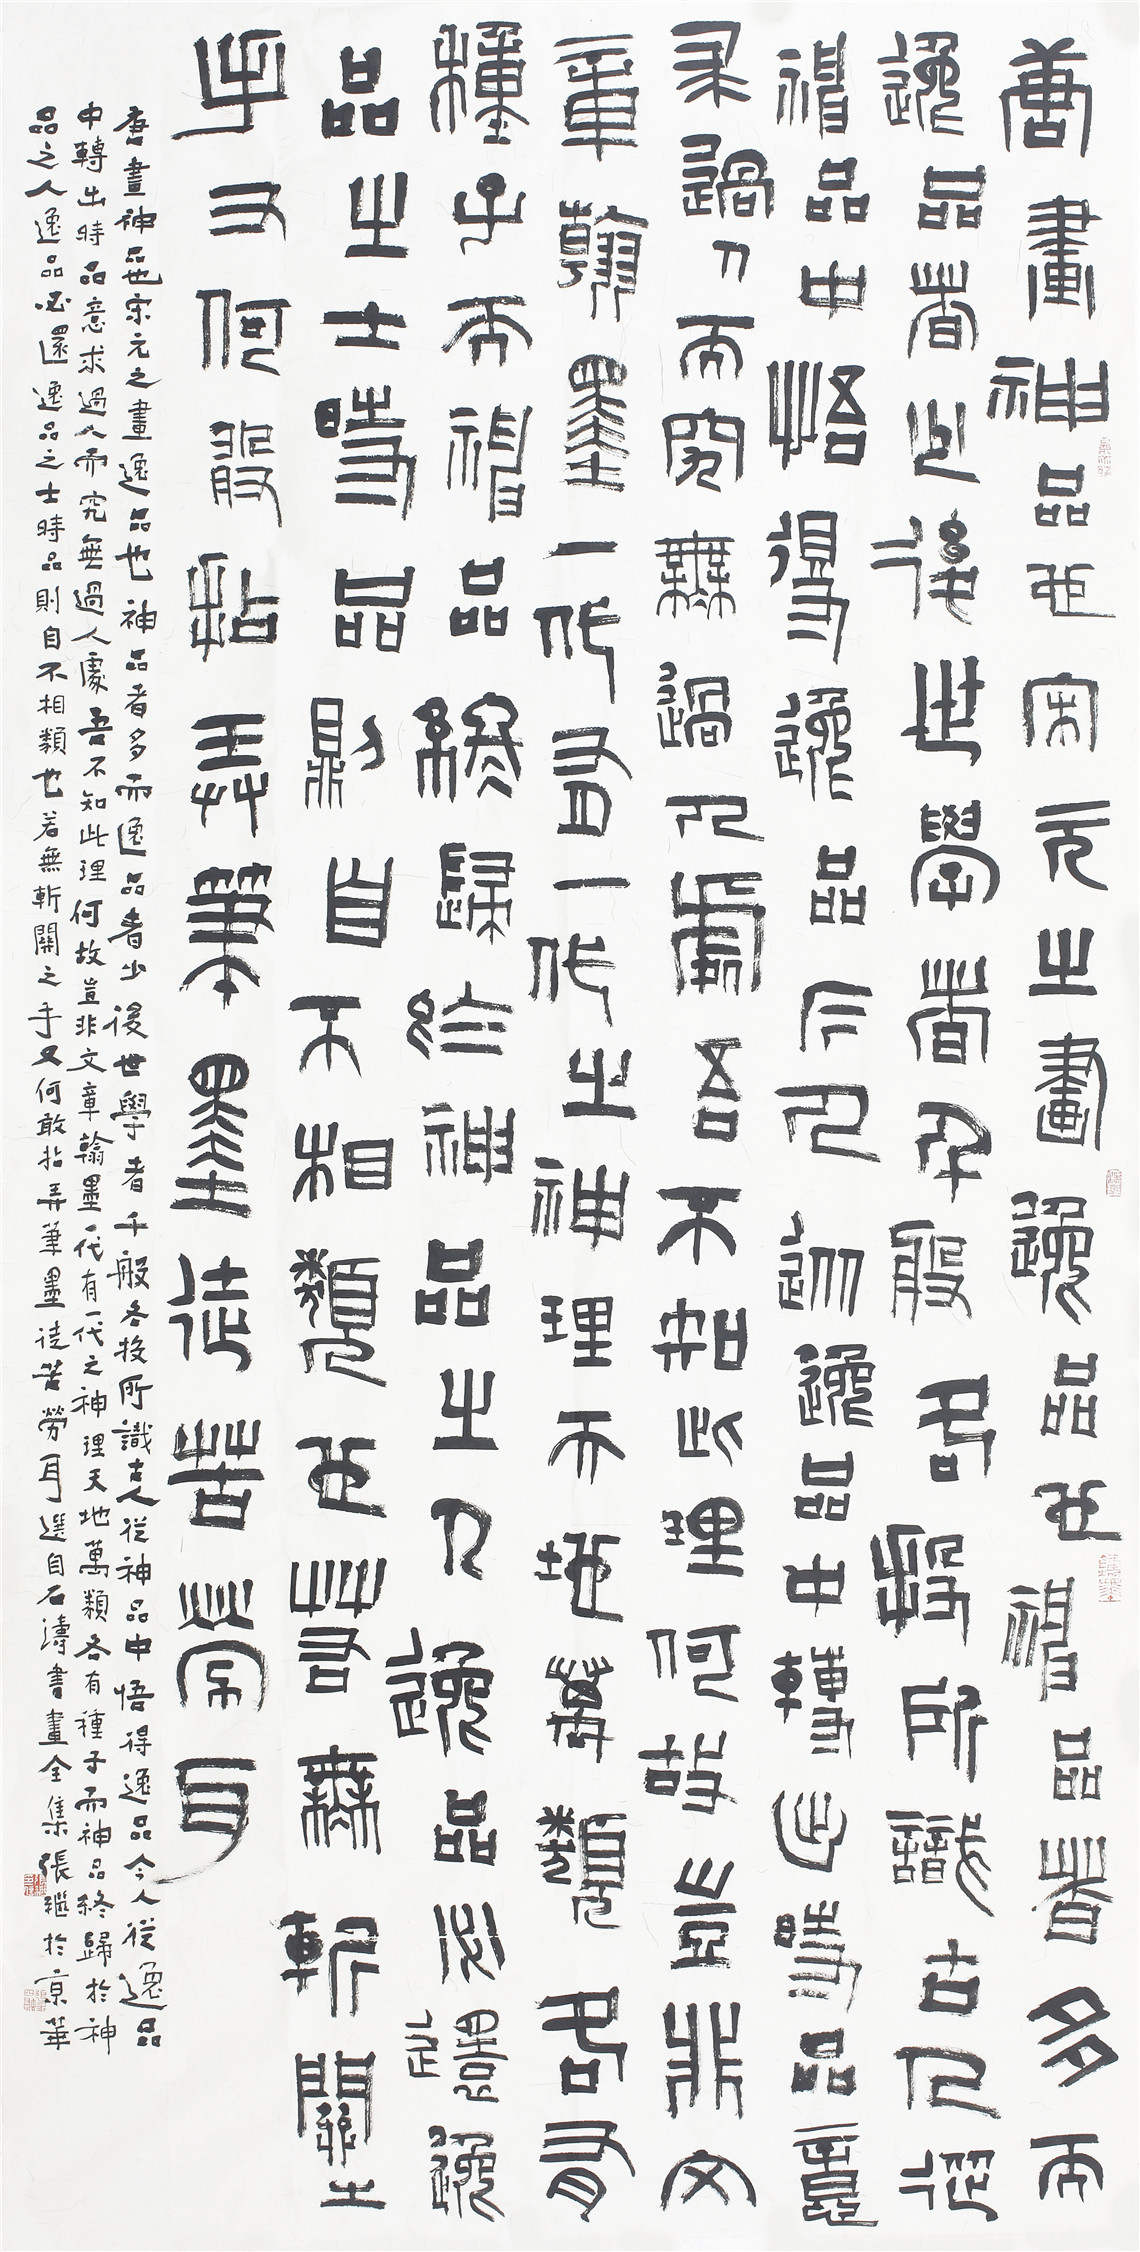 唐畫神品也宋元之畫逸品也神品者多而
逸品者少後世學者千般各投所識古人從
神品中悟得逸品今人從逸品中轉出時品意
求過人而究無過人處吾不知此理何故豈非文
章翰墨一代有一代之神理天地萬類各有
種子而神品終歸於神品之人逸品必還逸
品之士時品則自不相類也若無斬關之
手又何敢拈弄筆墨徒苦勞耳
唐畫神品也宋元之畫逸品也神品者多而逸品者少後世學者千般各投所識古人從神品中悟得逸品今人從逸品
中轉出時品意求過人而究無過人處吾不知此理何故豈非文章翰墨一代有一代之神理天地萬類各有種子而神品終歸於神
品之人逸品必還逸品之士時品則自不相類也若無斬關之手又何敢拈弄筆墨徒苦勞耳選自石濤書畫全集張繼於京華